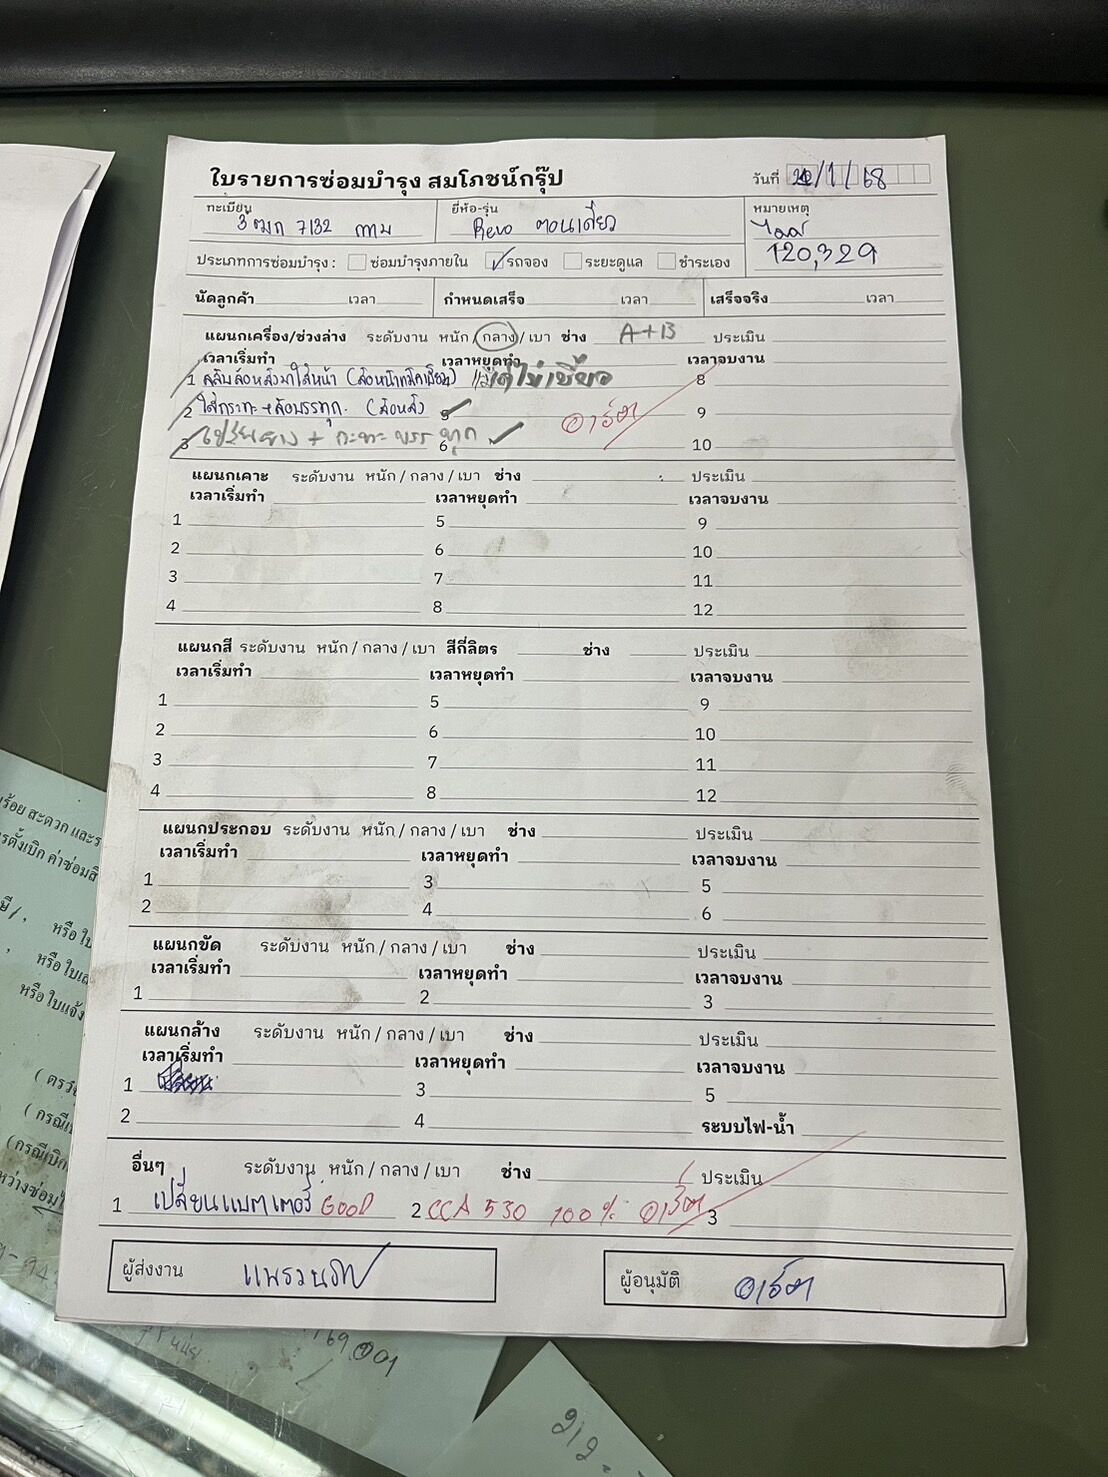 ใบรายการซ่อมบำรุง สมโภชน์กรุ๊ป
วันที่ /1/68
ทะเบียน 3ฒก 7132 กทม ยี่ห้อ-รุ่น Revo ตอนเดียว หมายเหตุ
ไมล์
120,329
ประเภทการซ่อมบำรุง : ซ่อมบำรุงภายใน ✓ รถจอง ระยะดูแล ชำระเอง
นัดลูกค้า เวลา กำหนดเสร็จ เวลา เสร็จจริง เวลา
แผนกเครื่อง/ช่วงล่าง ระดับงาน หนัก / กลาง / เบา ช่าง A+B ประเมิน
เวลาเริ่มทำ เวลาหยุดทำ เวลาจบงาน
1 สลับล้อหลังมาใส่หน้า 8
2 ใส่กระทะ+ล้อบรรทุก (ล้อหลัง) 5 ✓ อาร์ต 9
3 กะทะ บรรทุก 6 ✓ 10
แผนกเคาะ ระดับงาน หนัก / กลาง / เบา ช่าง ประเมิน
เวลาเริ่มทำ เวลาหยุดทำ เวลาจบงาน
1 5 9
2 6 10
3 7 11
4 8 12
แผนกสี ระดับงาน หนัก / กลาง / เบา สีกี่ลิตร ช่าง ประเมิน
เวลาเริ่มทำ เวลาหยุดทำ เวลาจบงาน
1 5 9
2 6 10
3 7 11
4 8 12
แผนกประกอบ ระดับงาน หนัก / กลาง / เบา ช่าง ประเมิน
เวลาเริ่มทำ เวลาหยุดทำ เวลาจบงาน
1 3 5
2 4 6
แผนกขัด ระดับงาน หนัก / กลาง / เบา ช่าง ประเมิน
เวลาเริ่มทำ เวลาหยุดทำ เวลาจบงาน
1 2 3
แผนกล้าง ระดับงาน หนัก / กลาง / เบา ช่าง ประเมิน
เวลาเริ่มทำ เวลาหยุดทำ เวลาจบงาน
1 3 5
2 4 ระบบไฟ-น้ำ
อื่นๆ ระดับงาน หนัก / กลาง / เบา ช่าง ประเมิน
1 เปลี่ยนแบตเตอรี่ GOOD 2 CCA 530 100% อาร์ต 3
ผู้ส่งงาน ผู้อนุมัติ อาร์ต
หรือ ใบแจ้ง